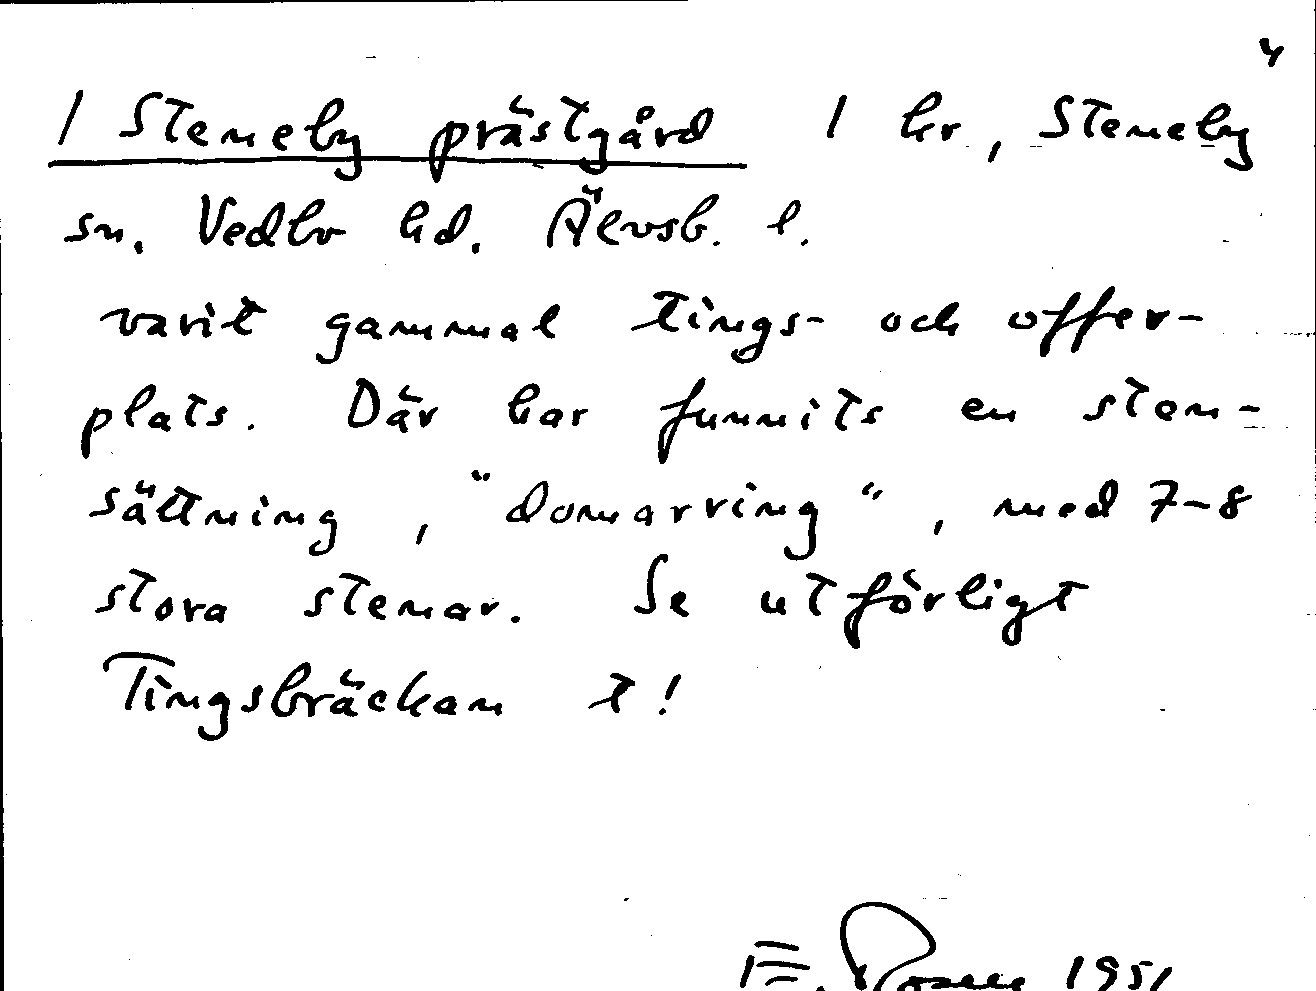 4
/ Steneby prästgård 1 hr, Steneby
sn. Vedbo hd. Älvsb. l.
varit gammal tings- och offer-
plats. Där har funnits en sten-
sättning, "domarring", med 7-8
stora stenar. Se utförligt
Tingsbräckan t!
E. 1951